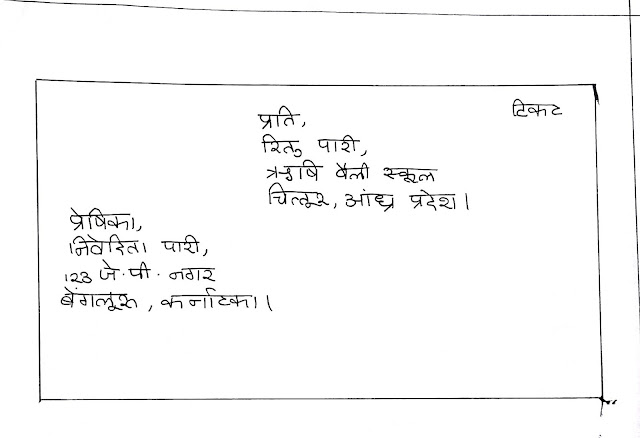 टिकट
प्रति,
रितु पारी,
ऋषि वैली स्कूल
चित्तूर, आंध्र प्रदेश।
प्रेषिका,
निवेदिता पारी,
123 जे. पी. नगर
बेंगलूरु, कर्नाटका।